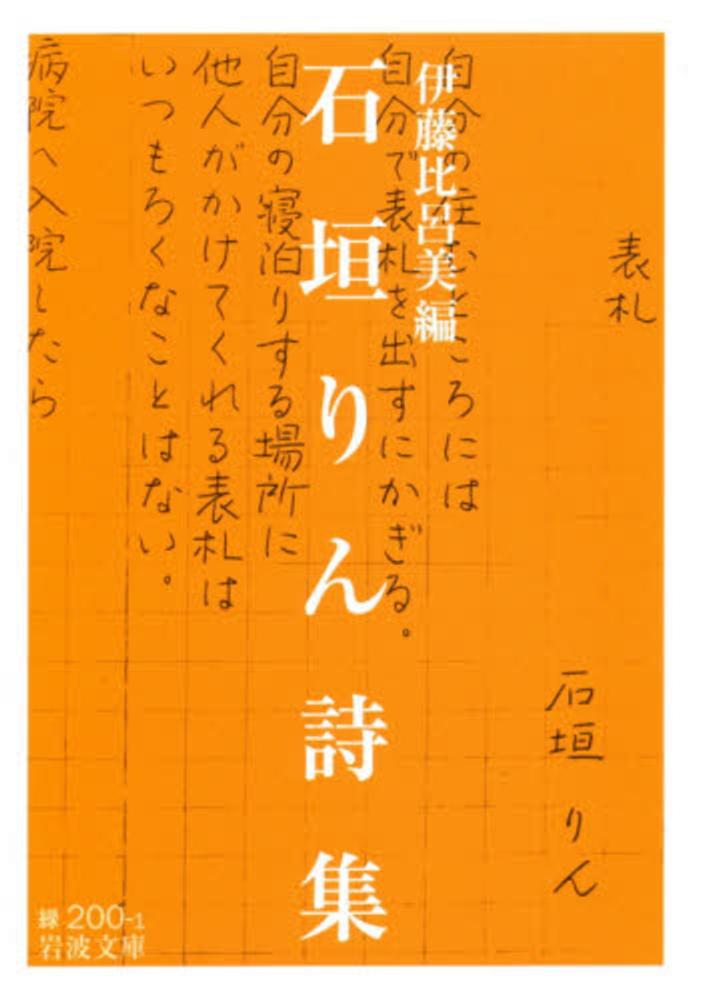 表札
石垣りん
自分の住むところには
自分で表札を出すにかぎる。
自分の寝泊りする場所に
他人がかけてくれる表札は
いつもろくなことはない。
病院へ入院したら
伊藤比呂美編
石垣りん詩集
緑200-1
岩波文庫